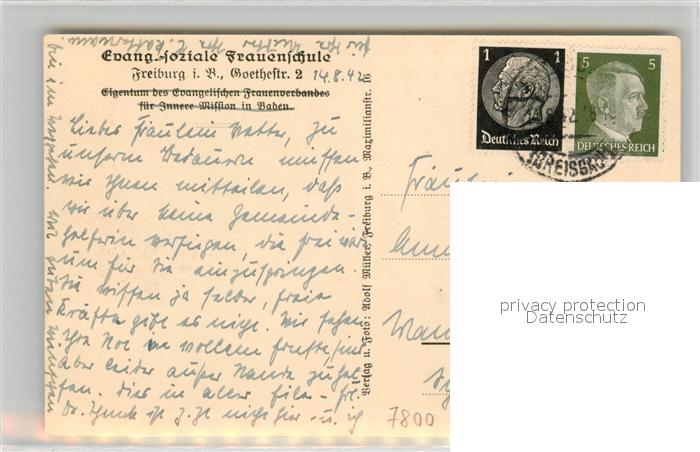 Evang.-soziale Frauenschule
Freiburg i. B., Goethestr. 2 14.8.42
Eigentum des Evangelischen Frauenverbandes
für Innere Mission in Baden.
Liebes Fräulein Vetter, Zu
unserm Bedauern müssen
wir Ihnen mitteilen, daß
wir über keine Gemeinde-
helferin verfügen, die frei wäre
um für Sie einzuspringen.
Sie wissen ja selber, freie
Kräfte gibt es nicht. Wir sehen
Ihre Not in vollem Ernste,
Aber leider außer Stande zu hel-
fen. Dies in aller Eile - Frl.
Dr. ist z. Zt nicht hier u. ich
bin im
Verlag u. Foto: Adolf Müller, Freiburg i. B., Maximilianstr. 16
1
Deutsches Reich
5 5
DEUTSCHES REICH
BREISGAU
Fräulein
7800
privacy protection
Datenschutz